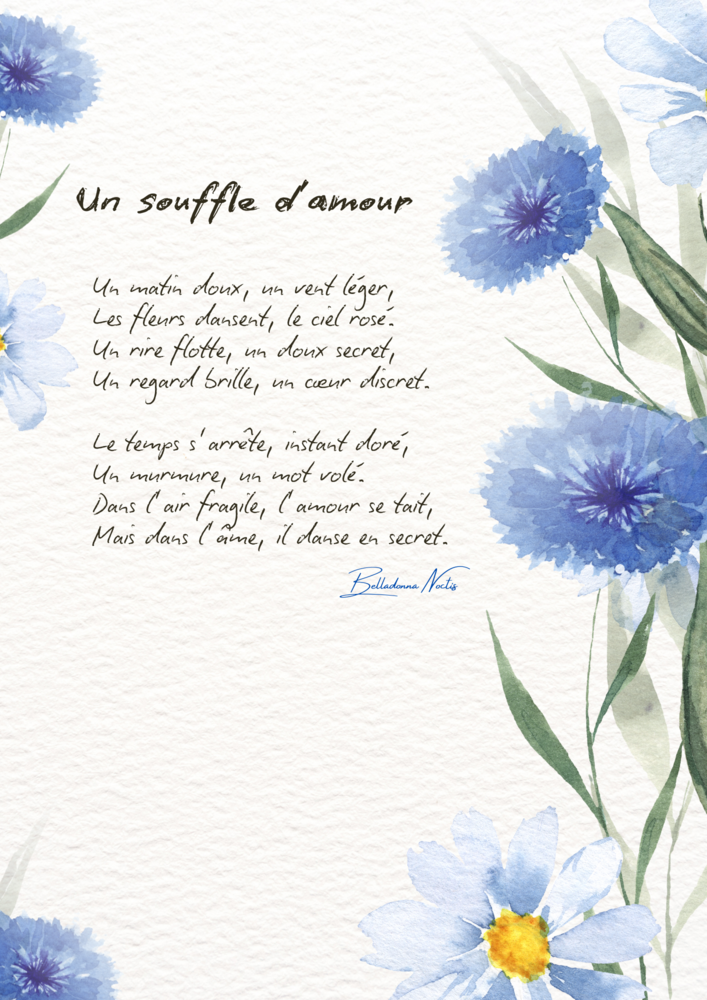 Un souffle d'amour
Un matin doux, un vent léger,
Les fleurs dansent, le ciel rosé.
Un rire flotte, un doux secret,
Un regard brille, un cœur discret.
Le temps s'arrête, instant doré,
Un murmure, un mot volé.
Dans l'air fragile, l'amour se tait,
Mais dans l'âme, il danse en secret.
Belladonna Noctis